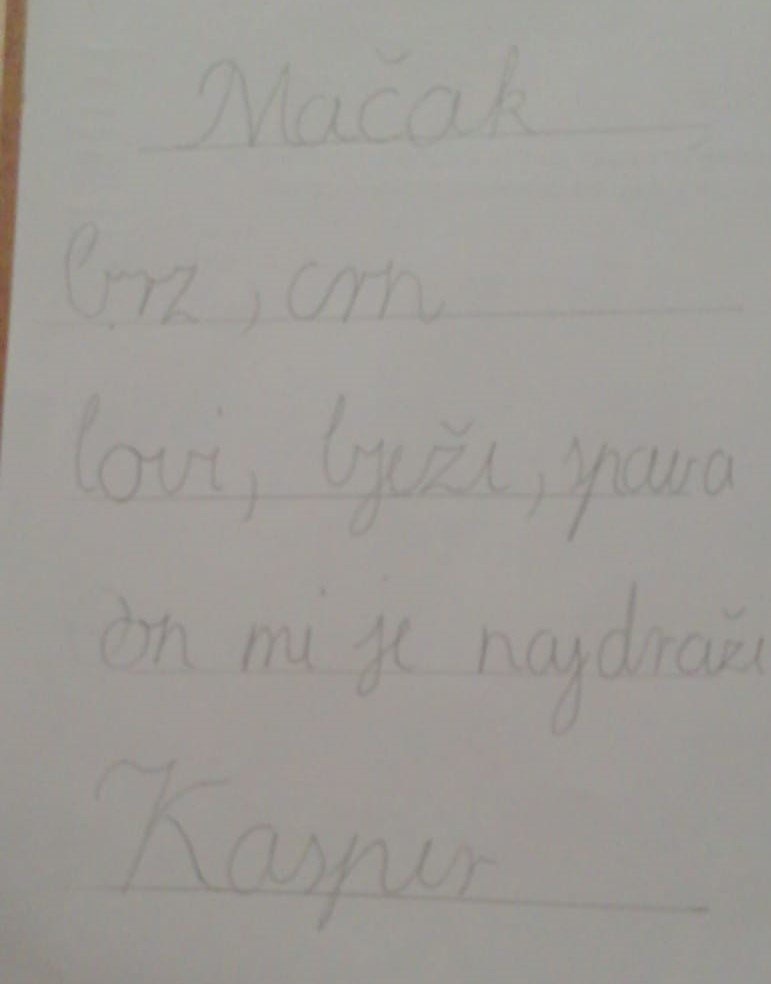 Mačak
brz, crn
lovi, bježi, spava
on mi je najdraži
Kasper